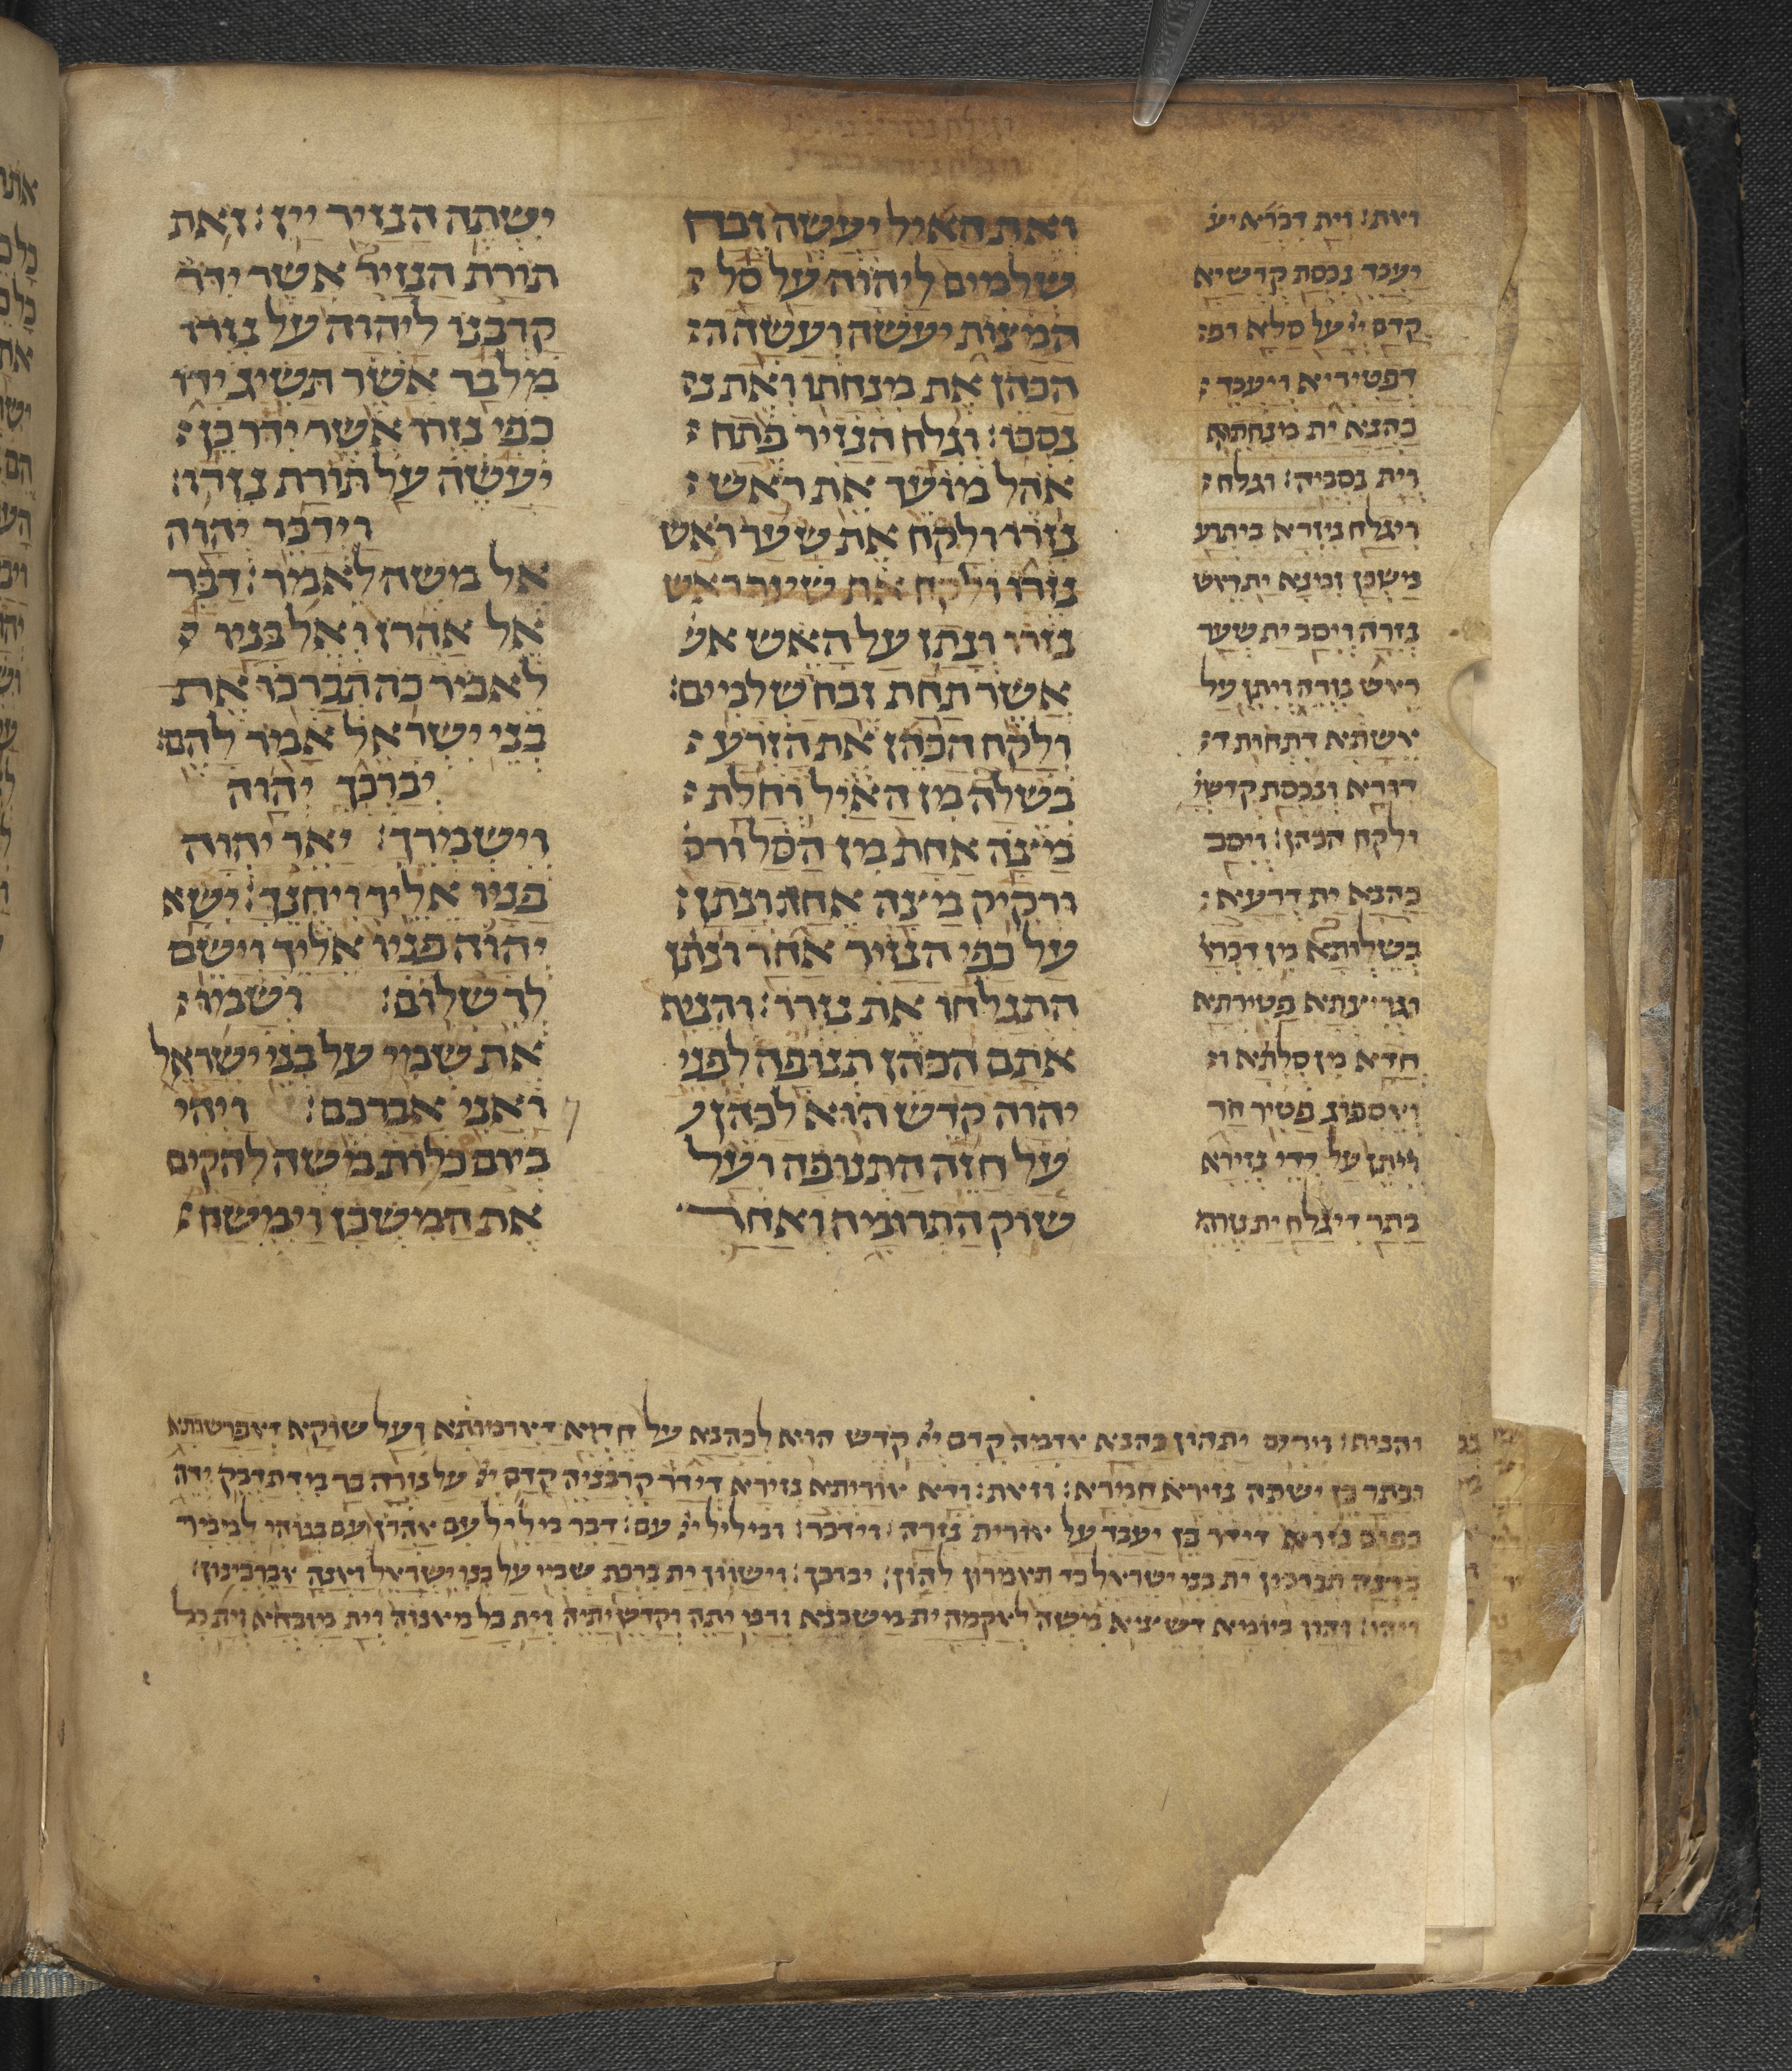 ואת האיל יעשה זבח
שלמים ליהוה על סל
המצות יעשה ועשה ה
הכהן את מנחתו ואת נ
נסכו׃ וגלח הנזיר פתח
אהל מועד את ראש
נזרו ולקח את שער ראש
נזרו ולקח את שער ראש
נזרו ונתן על האש אש
אשר תחת זבח שלמים׃
ולקח הכהן את הזרע
בשלה מן האיל וחלת
מצה אחת מן הסל ורק
ורקיק מצה אחד ונתן
על כפי הנזיר אחר ונתן
התגלחו את נזרו׃ והנית
אתם הכהן תנופה לפני
יהוה קדש הוא לכהן ע
על חזה התנופה ועל
שוק התרומה ואחר
ישתה הנזיר יין׃ זאת
תורת הנזיר אשר ידר
קרבנו ליהוה על נזרו
מלבד אשר תשיג ידו
כפי נדרו אשר ידר כן
יעשה על תורת נזרו׃
וידבר יהוה
אל משה לאמר׃ דבר
אל אהרן ואל בניו
לאמר כה תברכו את
בני ישראל אמר להם׃
יברכך יהוה
וישמרך׃ יאר יהוה
פניו אליך ויחנך׃ ישא
יהוה פניו אליך וישם
לך שלום׃ ושמו
את שמי על בני ישראל
ואני אברכם׃ ויהי
ביום כלות משה להקים
את המשכן וימשח
ואת׃ וית דכרא יע
יעבד נכסת קדשיא
קדם יי על סלא דפ
דפטיריא ויעבד
כהנא ית מנחתיה
וית נסכיה׃ וגלח
ויגלח נזירא בתרע
משכן זמנא ית ריש
נזרה ויסב ית שער
ריש נזרה ויתן על
אשתא דתחות ד
דודא ונכסת קדש
ולקח הכהן׃ ויסב
כהנא ית דרעא
בשלותא מן דכרא
וגריצתא פטירתא
חדא מן סלתא ו
ואספוג פטיר חד
ויתן על ידי נזירא
בתר דיגלח ית נזרה
והנית׃ וירים יתהון כהנא ארמה קדם יי קדש הוא לכהנא על חדיא דארמותא ועל שוקא דאפרשותא
ובתר כן ישתה נזירא חמרא׃ זאת׃ ודא אוריתא נזירא דידר קרבניה קדם יי על נזרה בר מדתדבק ידה
כפום נדרא דידר כן יעבד על אורית נזרה׃ וידבר׃ ומליל יי עם׃ דבר מליל עם אהרן ועם בנוהי למימר
כדנה תברכון ית בני ישראל כד תאמרון להון׃ יברכך׃ וישוון ית ברכת שמי על בני ישראל ואנה אברכינון׃
ויהי׃ והוה ביומא דשיציא משה לאקמה ית משכנא ורבי יתה וקדש יתיה וית כל מאנוה וית מדבחא וית כל